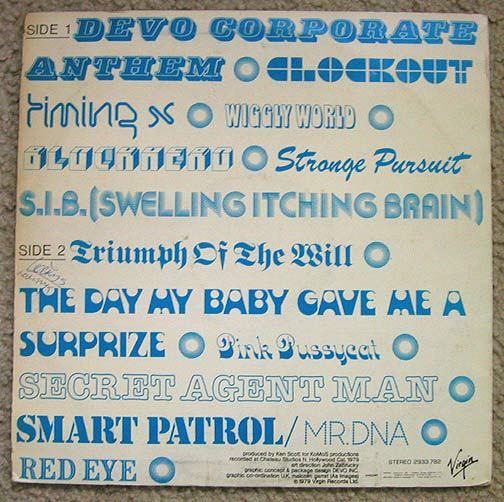 SIDE 1 DEVO CORPORATE
ANTHEM CLOCKOUT
timing X WIGGLY WORLD
BLOCKHEAD Stronge Pursuit
S.I.B. (SWELLING ITCHING BRAIN)
SIDE 2 Triumph Of The Will
THE DAY MY BABY GAVE ME A
SURPRIZE Pink Pussycat
SECRET AGENT MAN
SMART PATROL/MR.DNA
RED EYE
produced by Ken Scott for KoMoS productions
recorded at Chateau Studios N. Hollywood Cal. 1979
art direction John Zabrucky
graphic concept & package design DEVO INC.
graphic co-ordination U.K. malcolm garrett (Aa Images)
℗ 1979 Virgin Records
STEREO 2933 782
Virgin